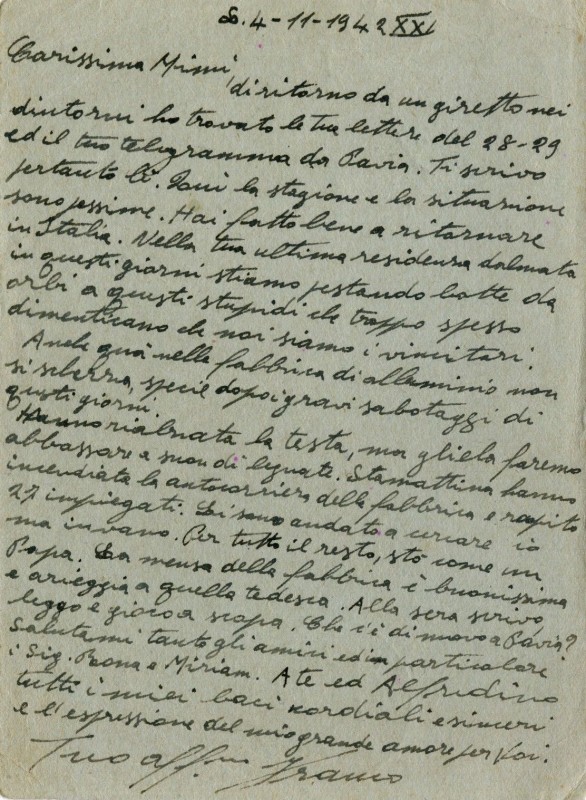 S. 4-11-1942 XXI
Carissima Mimi,
di ritorno da un giretto nei
dintorni ho trovato le tue lettere del 28-29
ed il tuo telegramma da Pavia. Ti scrivo
pertanto lì. Qui la stagione e la situazione
sono pessime. Hai fatto bene a ritornare
in Italia. Nella tua ultima residenza dalmata
in questi giorni stiamo pestando botte da
orbi a questi stupidi che troppo spesso
dimenticano che noi siamo i vincitori.
Anche quà nella fabbrica di alluminio non
si scherza, specie dopo i gravi sabotaggi di
questi giorni.
Hanno rialzata la testa, ma gliela faremo
abbassare a suon di legnate. Stamattina hanno
incendiata la autocorriera della fabbrica e rapito
27 impiegati. Ci sono andato a cercare io
ma invano. Per tutto il resto, stò come un
Papa. La mensa della fabbrica è buonissima
e arieggia a quella tedesca. Alla sera scrivo
leggo e gioco a scopa. Che c'è di nuovo a Pavia?
Salutami tanto gli amici ed in particolare
i Sig. Paona e Miriam. A te ed Alfredino
tutti i miei baci cordiali e sinceri
e l'espressione del mio grande amore per Voi.
Tuo aff.mo Franco